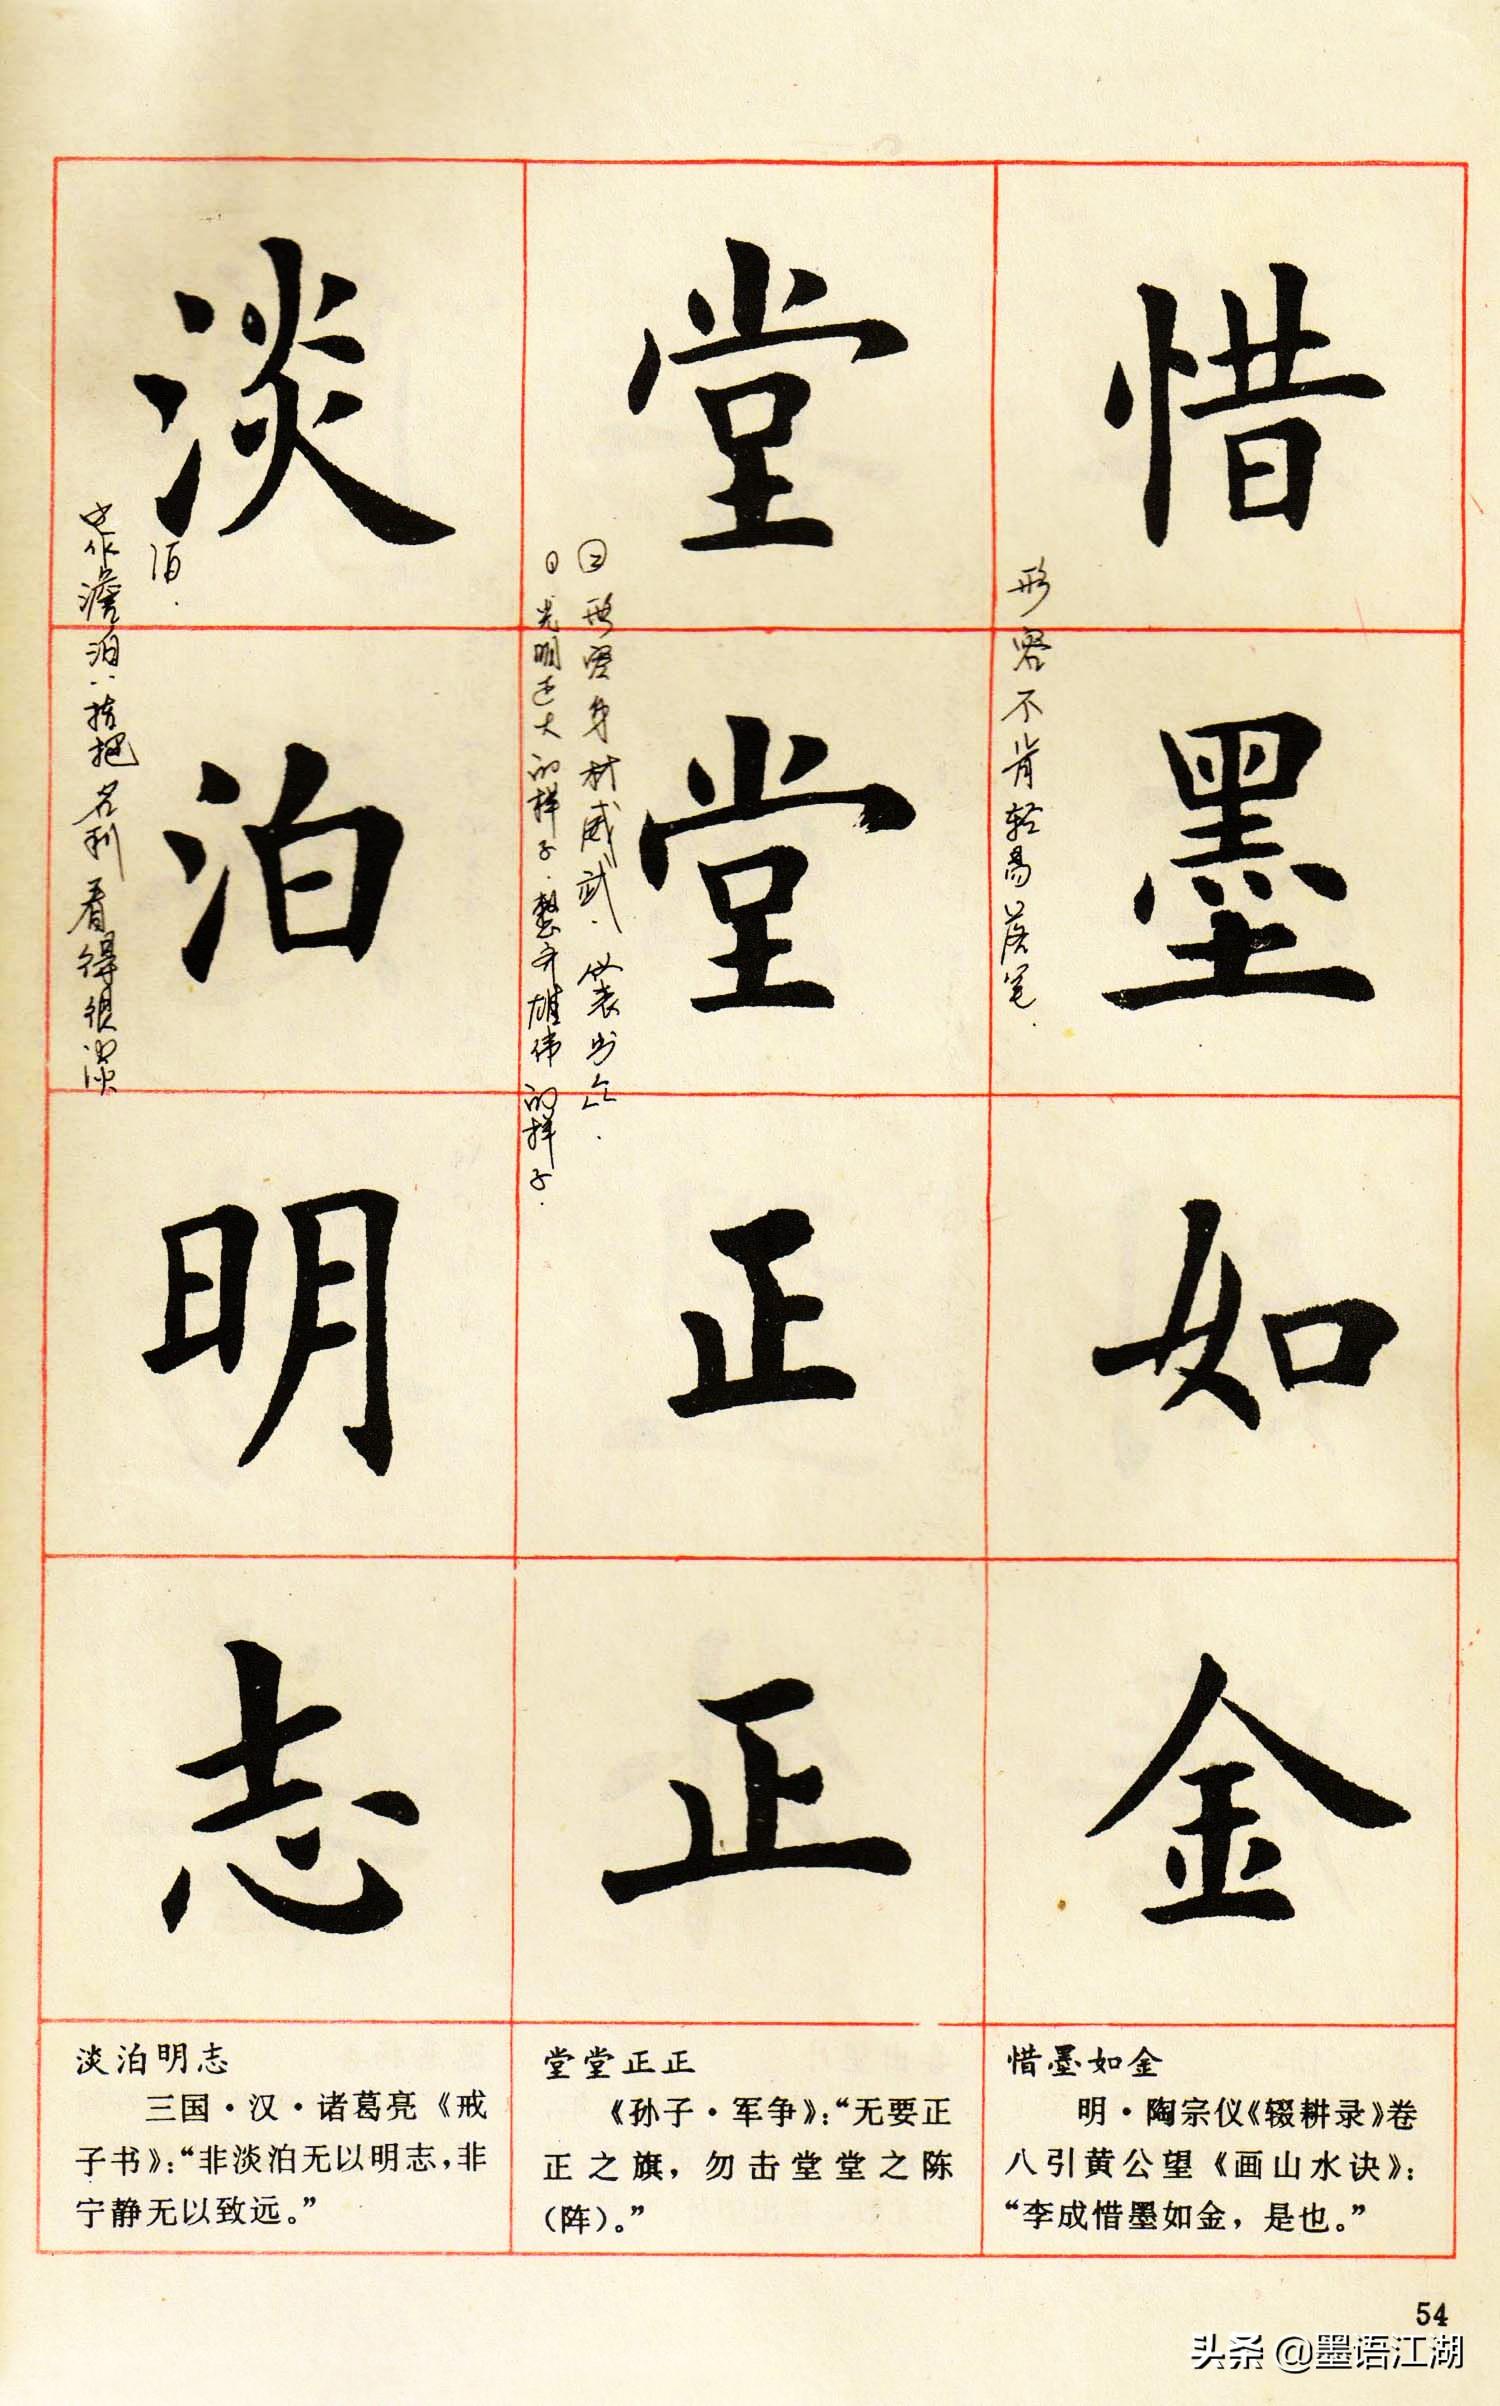 惜墨如金
形容不肯轻易落笔.
堂堂正正
㊁形容身材威武.仪表出众.
㊀光明正大的样子.整齐雄伟的样子.
淡泊明志
泊.
也作澹泊:指把名利看得很淡
惜墨如金
明·陶宗仪《辍耕录》卷
八引黄公望《画山水诀》:
“李成惜墨如金，是也。”
堂堂正正
《孙子·军争》:“无要正
正之旗，勿击堂堂之陈
(阵)。”
淡泊明志
三国·汉·诸葛亮《戒
子书》:“非淡泊无以明志,非
宁静无以致远。”
54
头条@墨语江湖